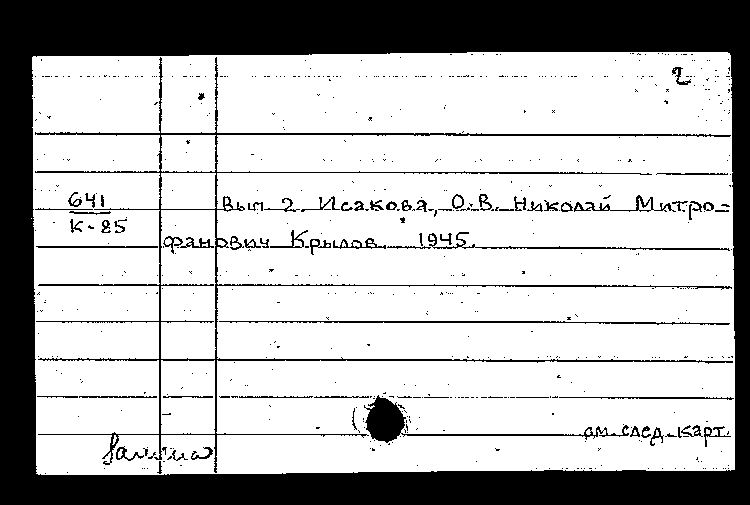 2
641
К-85
Вып. 2. Исакова, О.В. Николай Митро-
фанович Крылов. 1945.
см. след. карт.